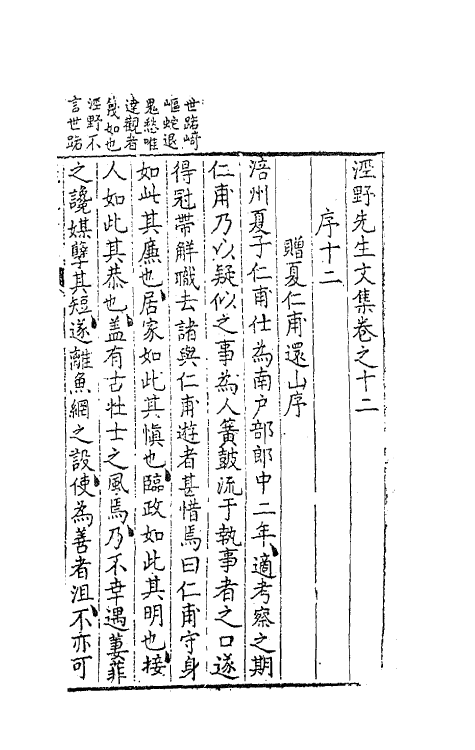 涇野先生文集卷之十二
序十二
贈夏仁甫還山序
涪州夏子仁甫仕為南户部郎中二年適考察之期
仁甫乃以疑似之事為人簧皷流于執事者之口遂
得冠帶解職去諸與仁甫遊者甚惜焉曰仁甫守身
如此其廉也居家如此其慎也臨政如此其明也接
人如此其恭也盖有古壮士之風焉乃不幸遇萋菲
之讒媒孽其短遂離魚網之設使為善者沮不亦可
世路崎
嶇蛇退
鬼愁唯
達觀者
㡬如也
涇野不
言世路